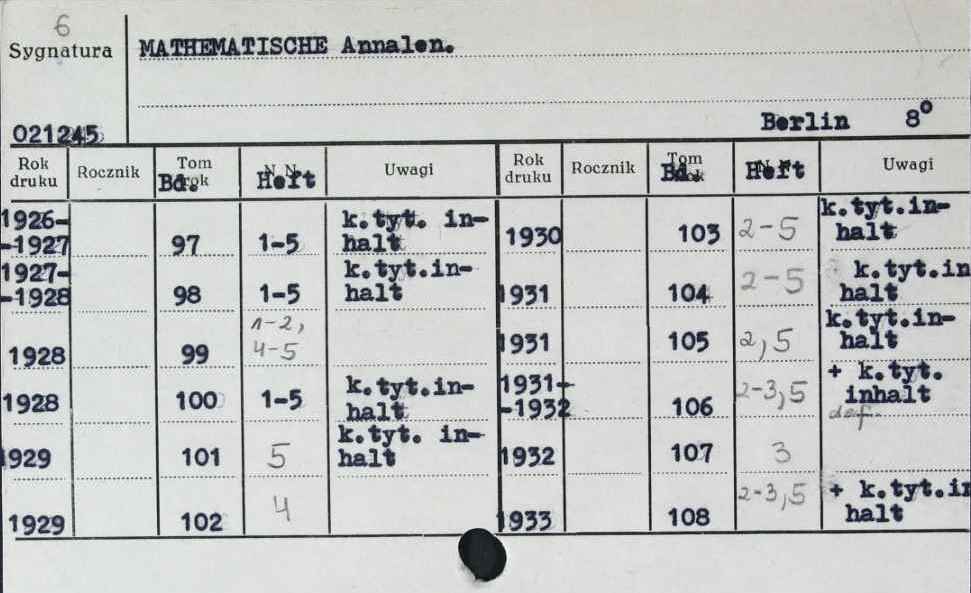 6
Sygnatura
MATHEMATISCHE Annalen.
Berlin 8°
021245
Rok druku Rocznik Tom Bd. Heft Uwagi Rok druku Rocznik Tom Bd. Heft Uwagi
1926-
-1927 97 1-5 k.tyt. in-
halt
1927-
-1928 98 1-5 k.tyt.in-
halt
1928 99 1-2,
4-5
1928 100 1-5 k.tyt.in-
halt
1929 101 5 k.tyt. in-
halt
1929 102 4
1930 103 2-5 k.tyt.in-
halt
1931 104 2-5 k.tyt.in
halt
1931 105 2,5 k.tyt.in-
halt
1931-
-1932 106 2-3,5 + k.tyt.
inhalt
def.
1932 107 3
1933 108 2-3,5 + k.tyt.in
halt